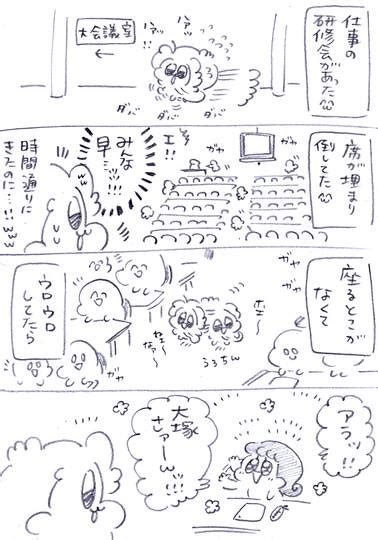 仕事の
研修会があった
大会議室
←
ハァッ
ハァッ!!
ダバ
ダバ
ダバ
席が埋まり
倒してた
ガヤ
ガヤ
エ!!
みんな
早…ッ!!!
時間通りに
きたのに…!!www
座るとこが
なくて
ガヤ
ガヤ
うろちん
ウロウロ
してたら
ガヤ
アラッ!!
大塚
さァーんッ!!